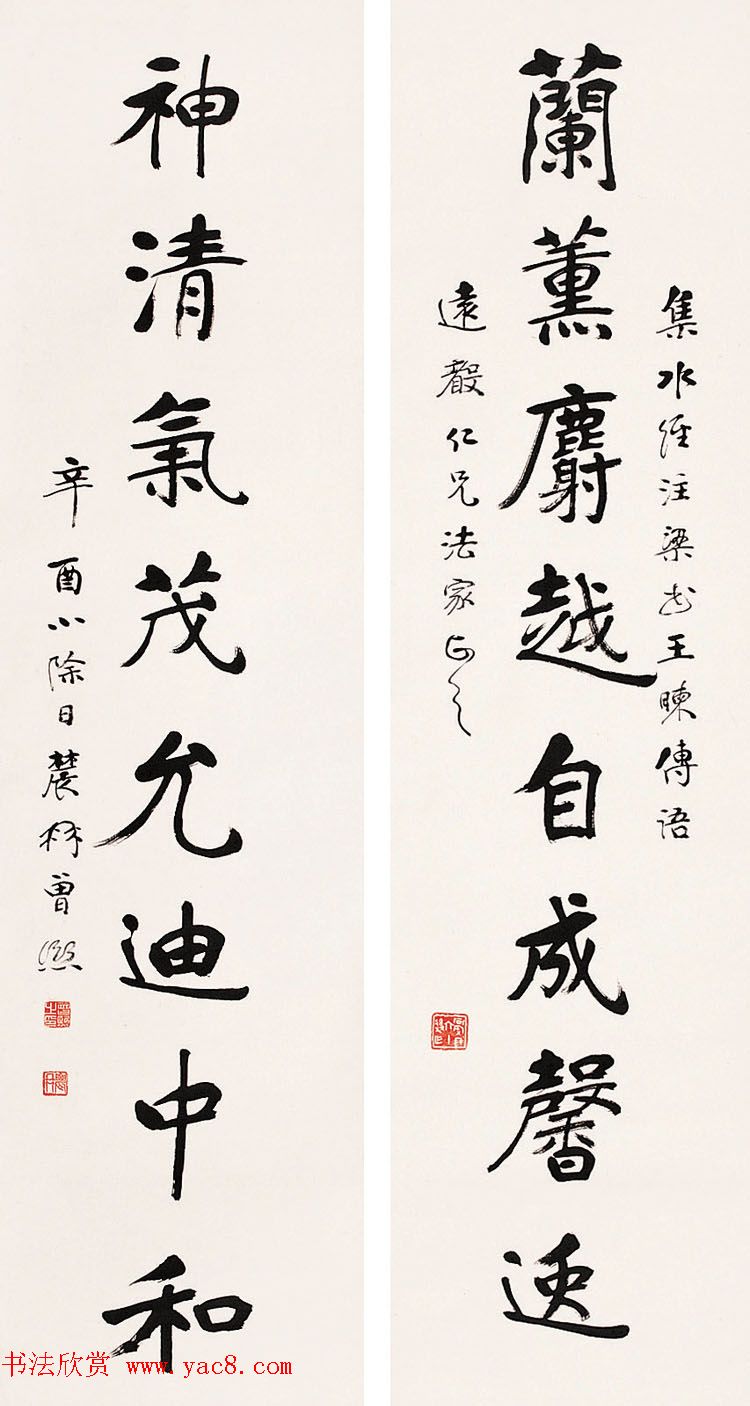 集水經注梁書王暕傳語
蘭薰麝越自成馨逸
遠仁兄法家正之
神清氣茂允迪中和
辛酉小除日農髯曾熙
书法欣赏 www.yac8.com